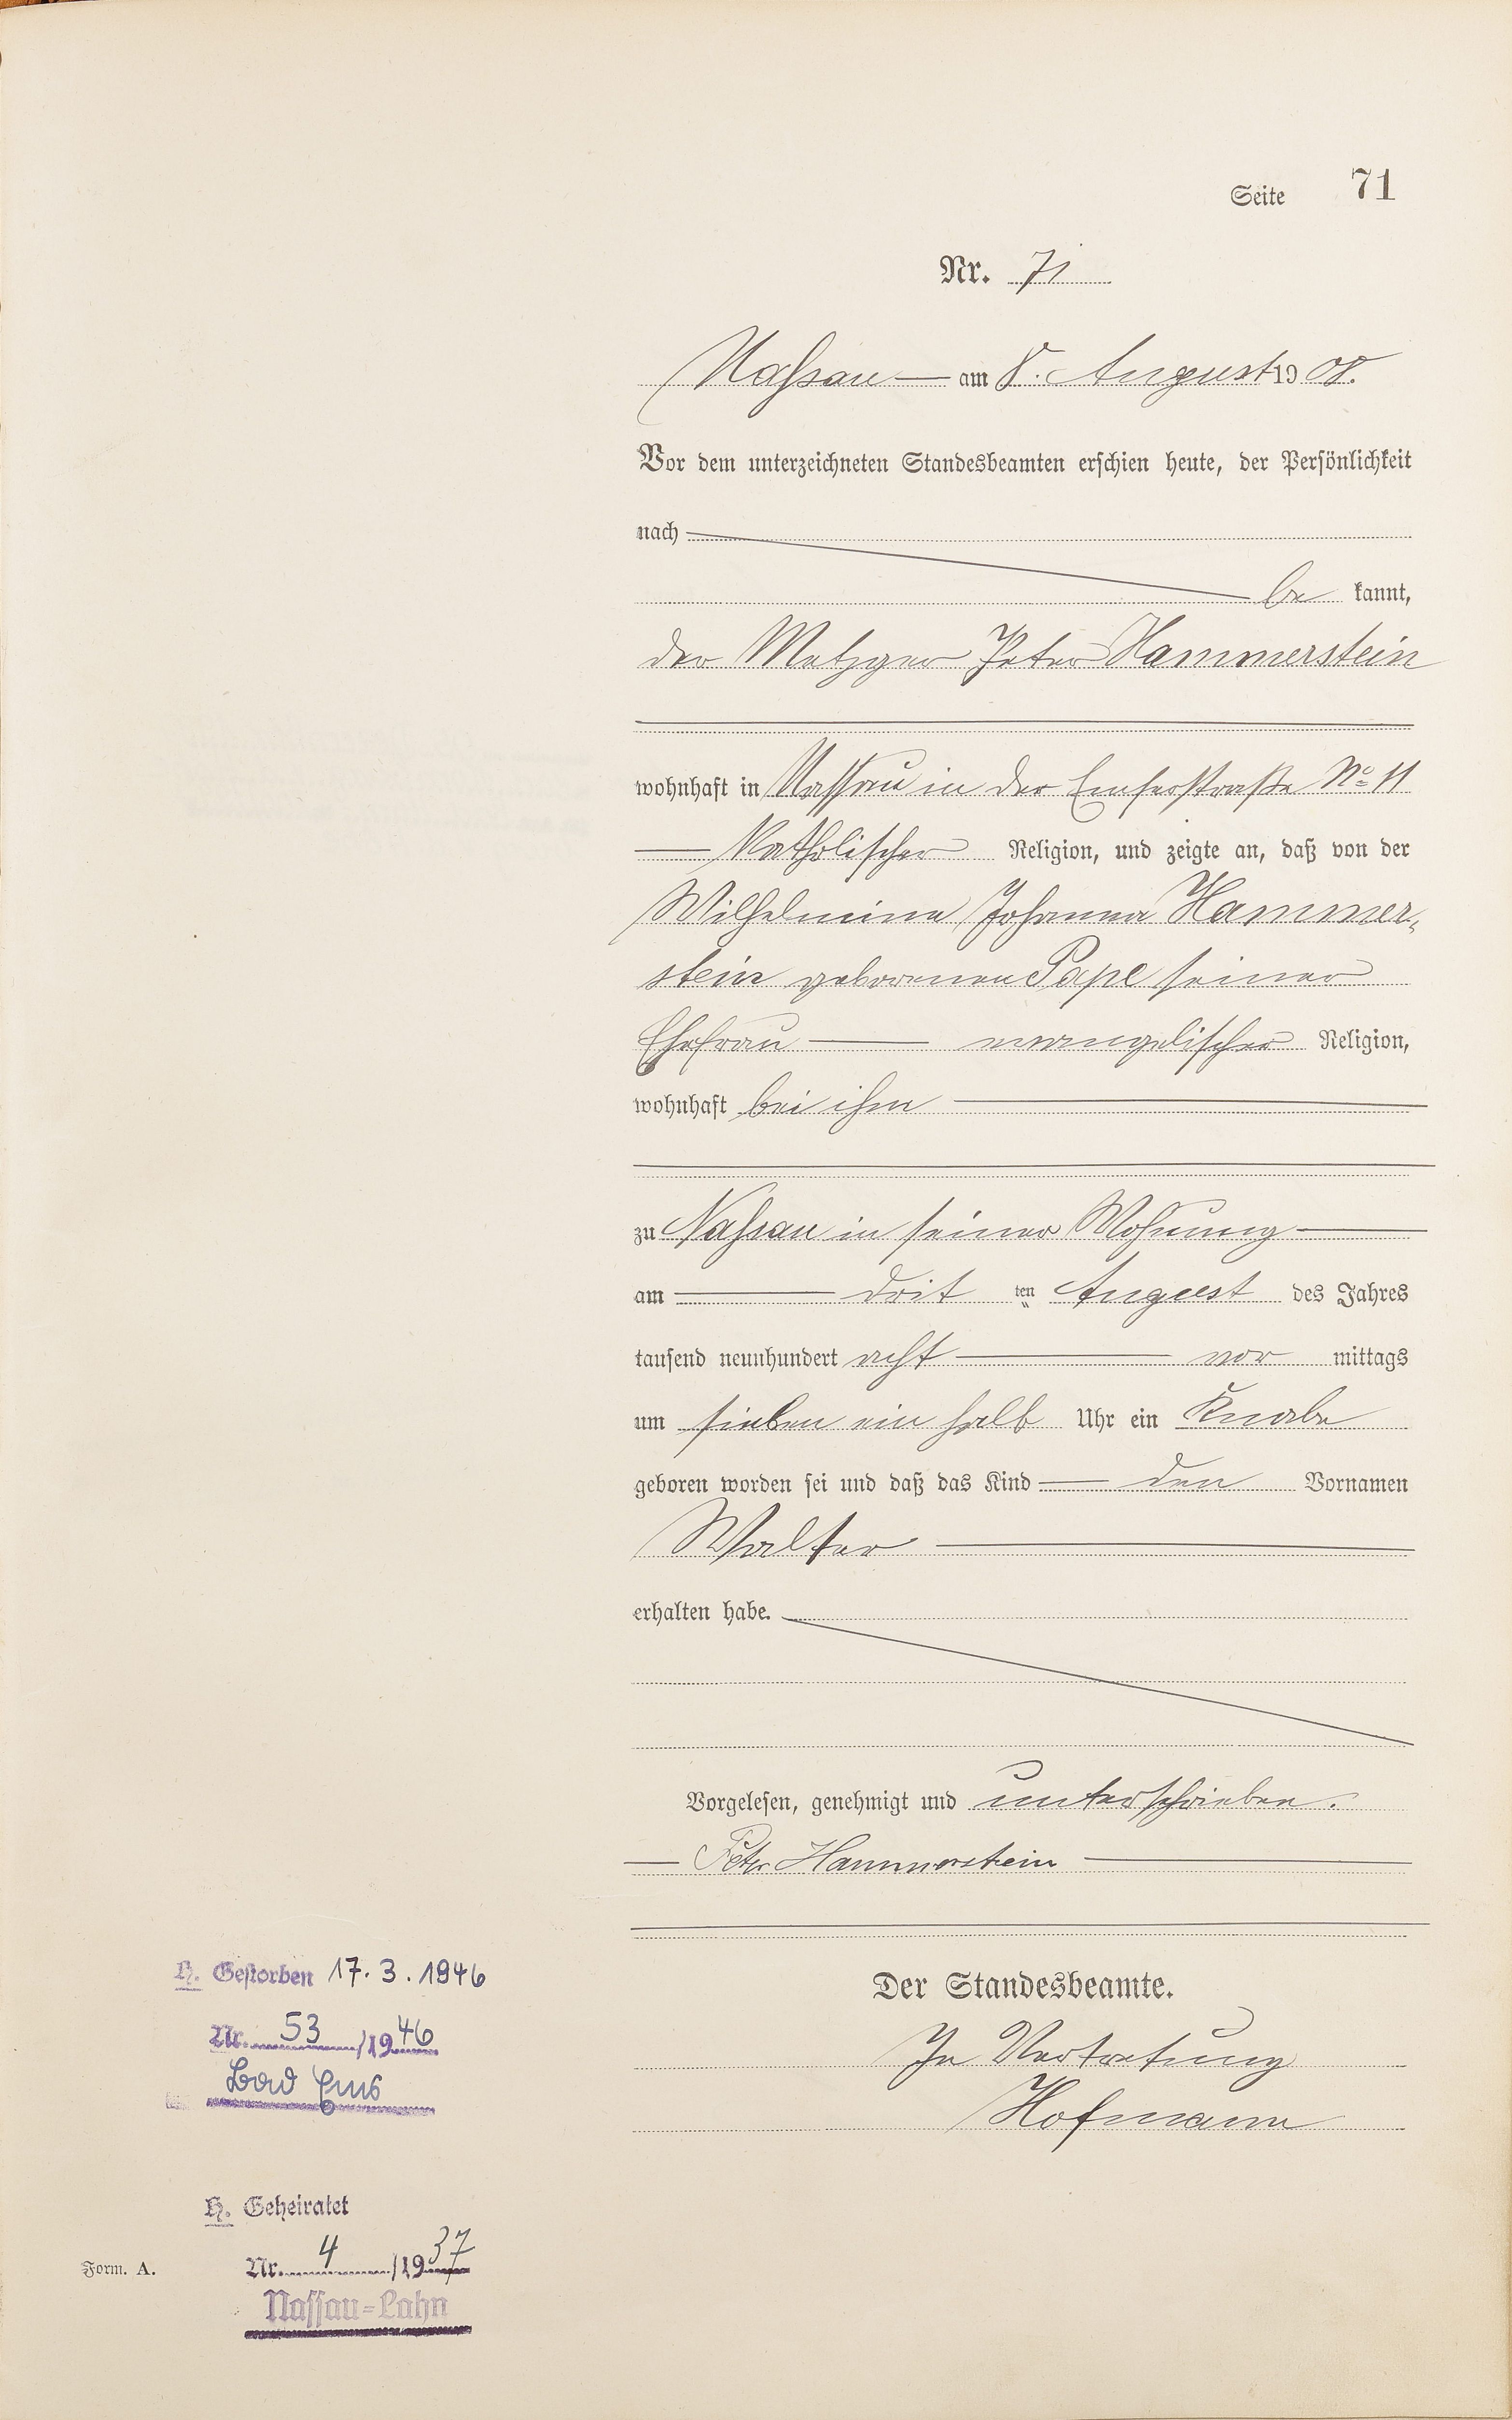 Seite 71
Nr. 71
Nassau — am 8. August 19 08.
Vor dem unterzeichneten Standesbeamten erschien heute, der Persönlichkeit
nach
be kannt,
der Metzger Peter Hammerstein
wohnhaft in Nassau in der Emserstraße No 11
— katholischer Religion, und zeigte an, daß von der
Wilhelmine Johanna Hammer-
stein geborenen Pape seiner
Ehefrau — evangelischer Religion,
wohnhaft bei ihm —
zu Nassau in seiner Wohnung —
am — dritten August des Jahres
tausend neunhundert acht — vor mittags
um sieben ein halb Uhr ein Knabe
geboren worden sei und daß das Kind — den Vornamen
Walter —
erhalten habe.
Vorgelesen, genehmigt und unterschrieben.
— Peter Hammerstein —
Der Standesbeamte.
In Vertretung
Hofmann
H. Gestorben 17.3.1946
Nr. 53 /1946
Bad Ems
H. Geheiratet
Nr. 4 /1937
Nassau-Lahn
Form. A.